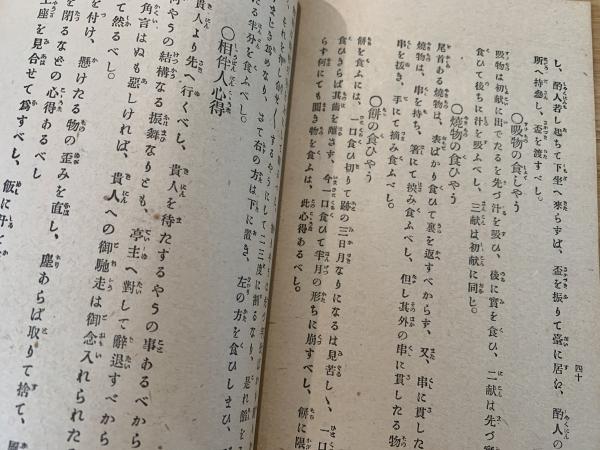 四十
し、酌人若し起ちて下坐へ來らずば、盃を振りて臺に居ゑ、酌人の
所へ持參し、盃を渡すべし。
〇吸物の食しやう
吸物は初献に出でたるを先づ汁を吸ひ、後に實を食ひ、二献は先づ實
食ひて後ちに汁を吸ふべし、三献は初献に同じ。
〇燒物の食ひやう
尾首ある燒物は、表ばかり食ひて裏を返すべからず、又、串に貫した
燒物は、串を持ち、箸にて挾み食ふべし、但し其外の串に貫したる物
串を拔き、手にて摘み食ふべし。
〇餅の食ひやう
餅を食ふには、一口食ひ切りて跡の三日月なりになるは見苦し、一口
食ひきらば其齒を離さず、今一口食ひて半月の形ちに崩すべし、餅に限
らず何にても圓き物を食ふは、此心得あるべし。
するやうにして二三度に割るなり、是れ館を
る半分を食ふべし。
〇相伴人心得
貴人より先へ行くべし、貴人を待たするやうの事あるべから
何やうの結構なる振舞なりとも、亭主へ對して辭退すべから
角言はぬも惡しければ、貴人への御馳走は御念入れられた
て然るべし。
を付け、懸けたる物の歪みを直し、塵あらば取りて捨て、
を閉るなどの心得あるべし
上座を見合せて爲すべし、飯に汁を